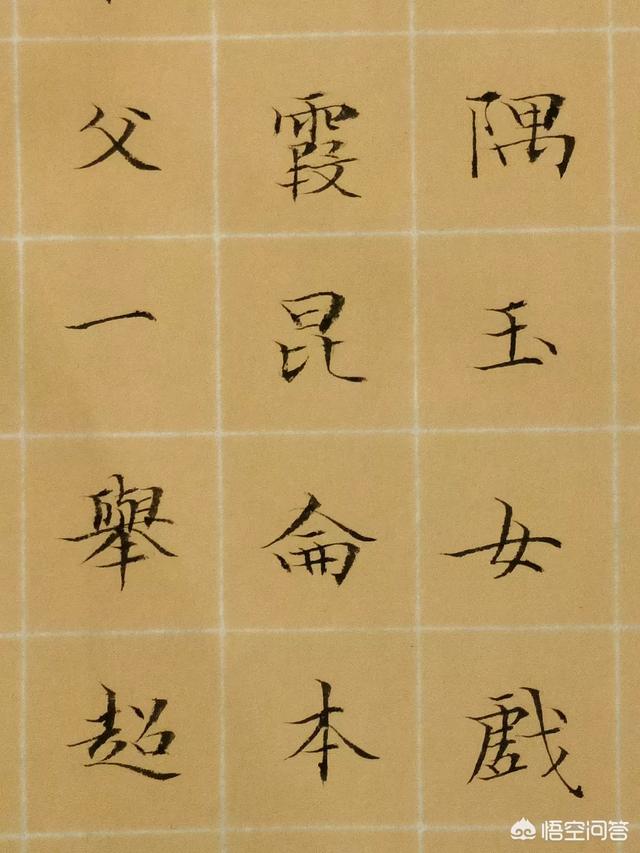 隅玉女戲
霞昆侖本
父一舉超
悟空问答